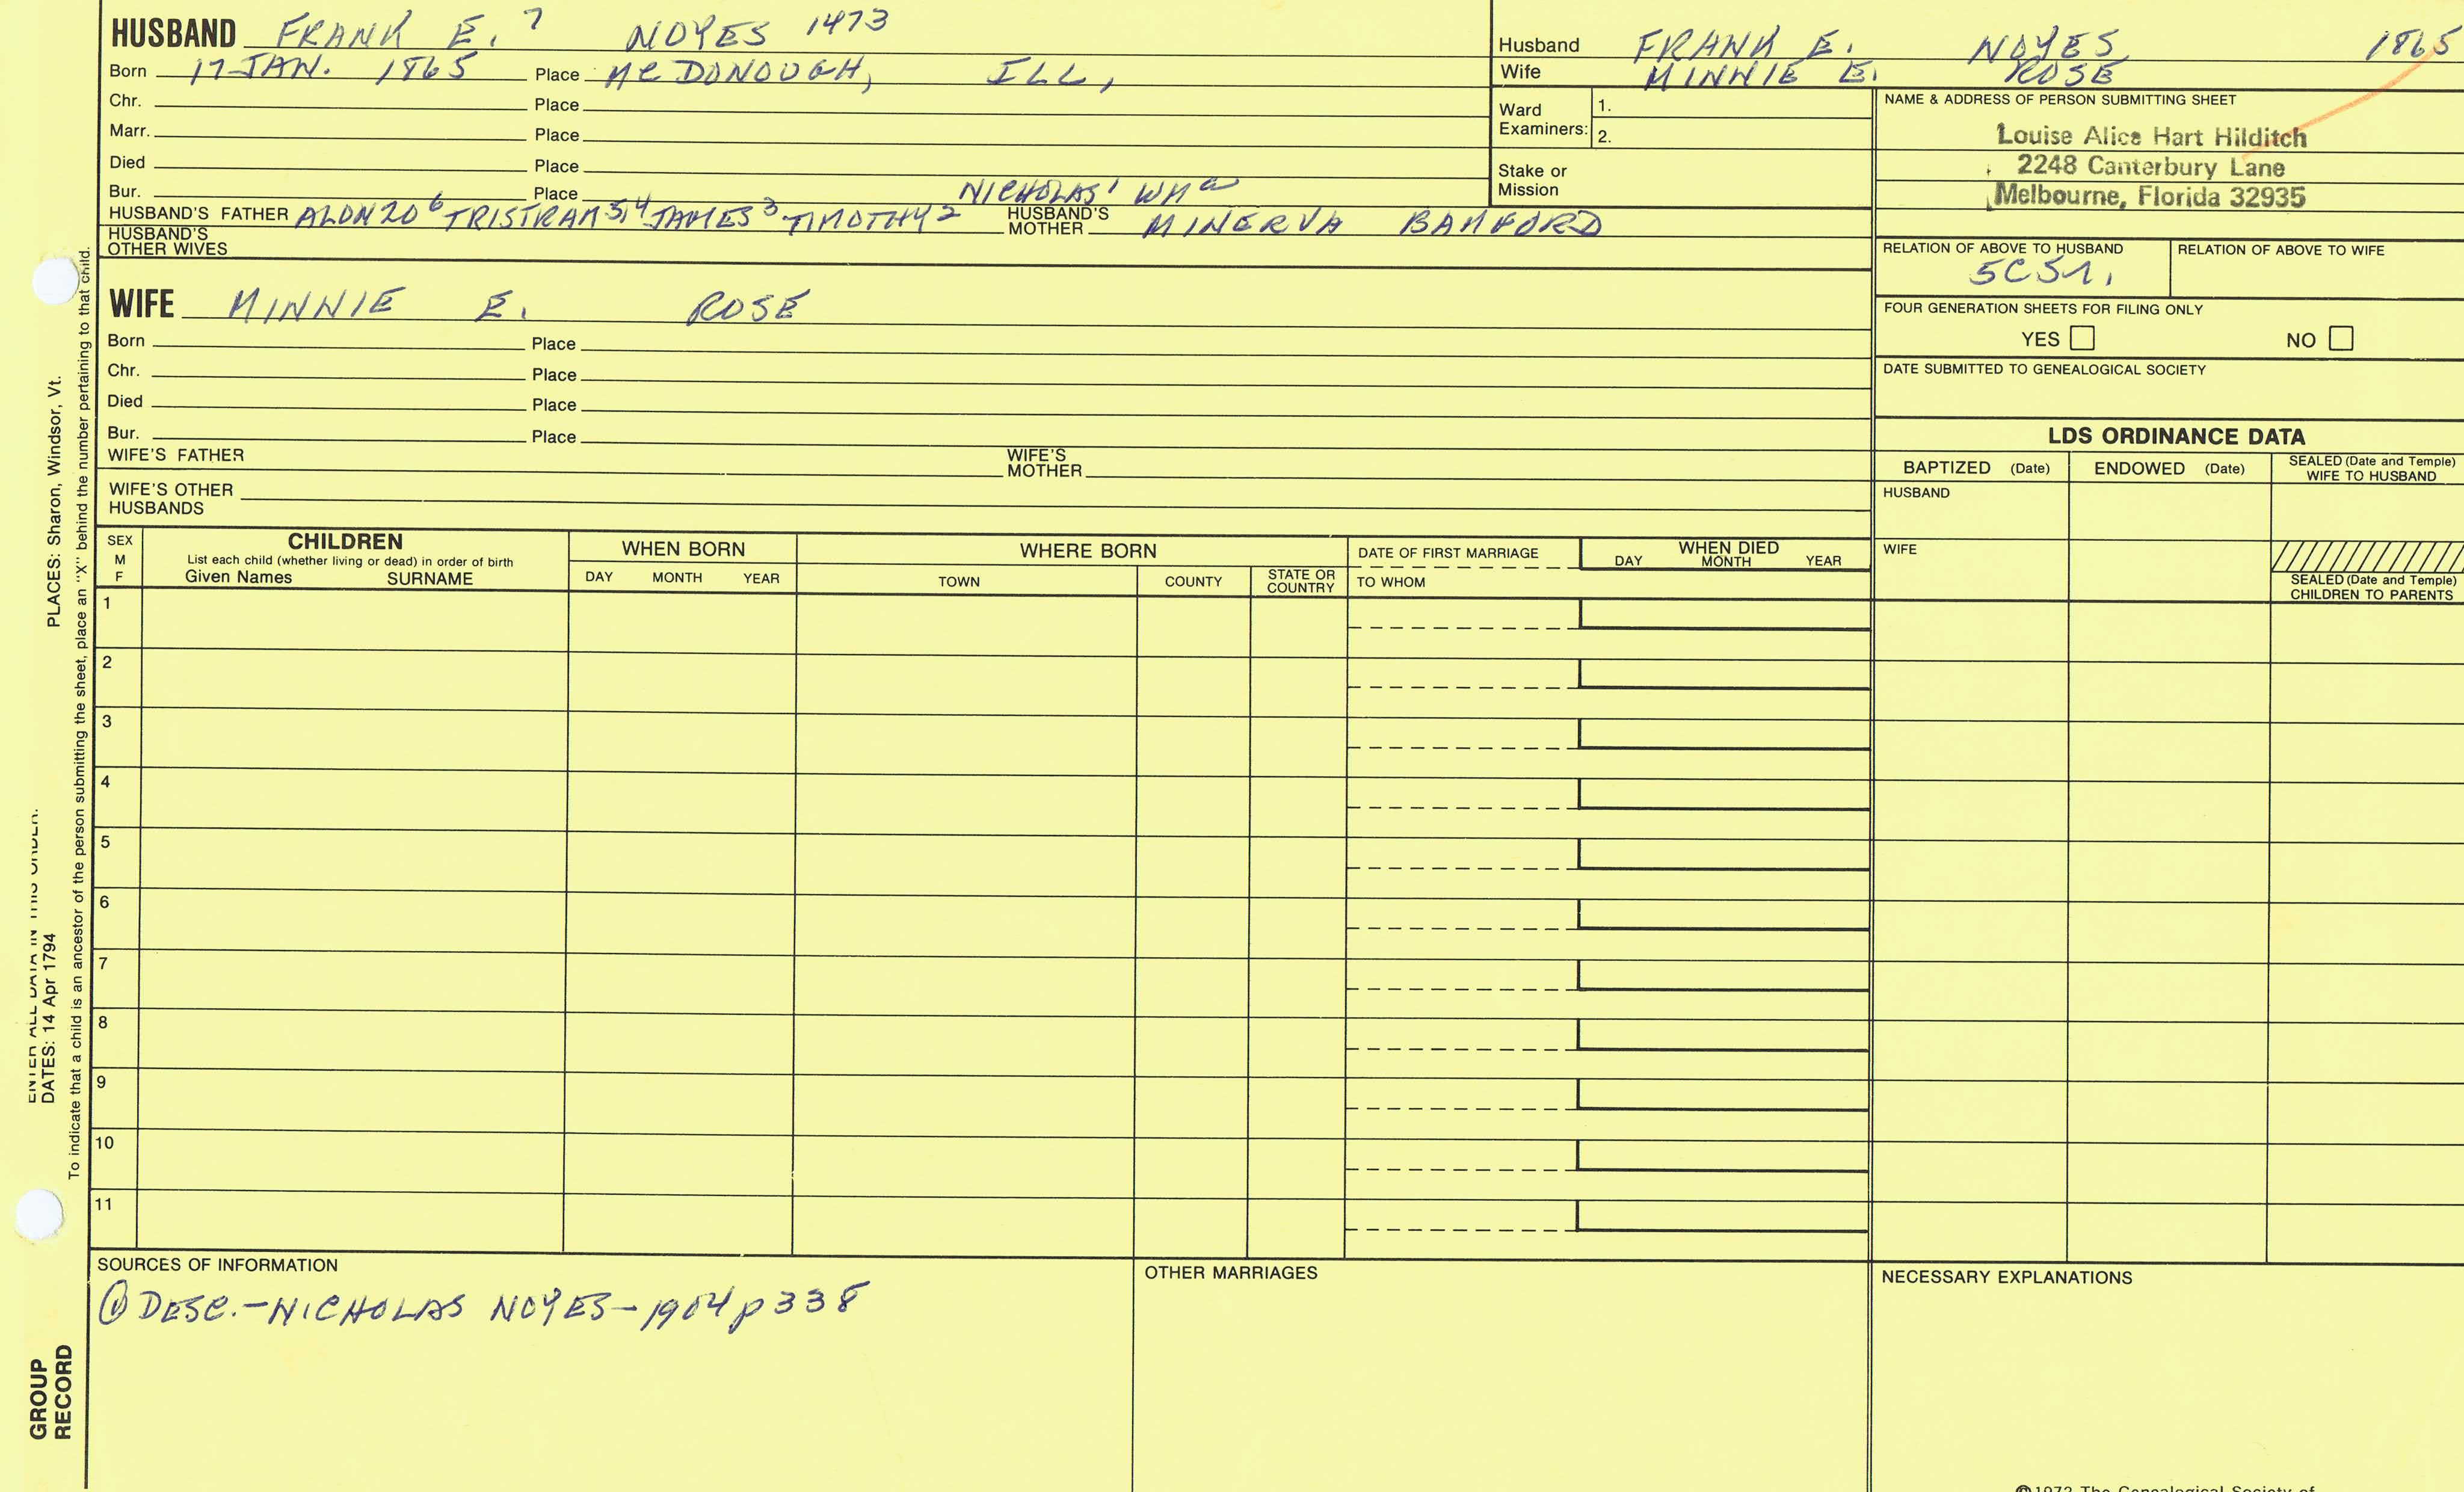 HUSBAND FRANK E. 7 NOYES 1473
Born 17 JAN. 1865 Place McDONOUGH, ILL,
Chr. Place
Marr. Place
Died Place
Bur. Place NICHOLAS' WM a
HUSBAND'S FATHER ALONZO 6 TRISTRAM 5,4 JAMES 3 TIMOTHY 2 HUSBAND'S MOTHER MINERVA BAMFORD
HUSBAND'S OTHER WIVES
Husband FRANK E. NOYES 1865
Wife MINNIE E. ROSE
Ward Examiners: 1.
2.
Stake or Mission
NAME & ADDRESS OF PERSON SUBMITTING SHEET
Louise Alice Hart Hilditch
2248 Canterbury Lane
Melbourne, Florida 32935
RELATION OF ABOVE TO HUSBAND RELATION OF ABOVE TO WIFE
FOUR GENERATION SHEETS FOR FILING ONLY
YES NO
DATE SUBMITTED TO GENEALOGICAL SOCIETY
WIFE MINNIE E. ROSE
Born Place
Chr. Place
Died Place
Bur. Place
WIFE'S FATHER WIFE'S MOTHER
WIFE'S OTHER HUSBANDS
LDS ORDINANCE DATA
BAPTIZED (Date) ENDOWED (Date) SEALED (Date and Temple) WIFE TO HUSBAND
HUSBAND
WIFE
SEALED (Date and Temple) CHILDREN TO PARENTS
SEX M F
CHILDREN
List each child (whether living or dead) in order of birth
Given Names SURNAME
WHEN BORN
DAY MONTH YEAR
WHERE BORN
TOWN COUNTY STATE OR COUNTRY
DATE OF FIRST MARRIAGE
TO WHOM
WHEN DIED
DAY MONTH YEAR
1
2
3
4
5
6
7
8
9
10
11
SOURCES OF INFORMATION
① DESC.-NICHOLAS NOYES-1904 p 338
OTHER MARRIAGES
NECESSARY EXPLANATIONS
©1972 The Genealogical Society of
ENTER ALL DATA IN THIS ORDER:
DATES: 14 Apr 1794 PLACES: Sharon, Windsor, Vt.
To indicate that a child is an ancestor of the person submitting the sheet, place an "X" behind the number pertaining to that child.
GROUP
RECORD